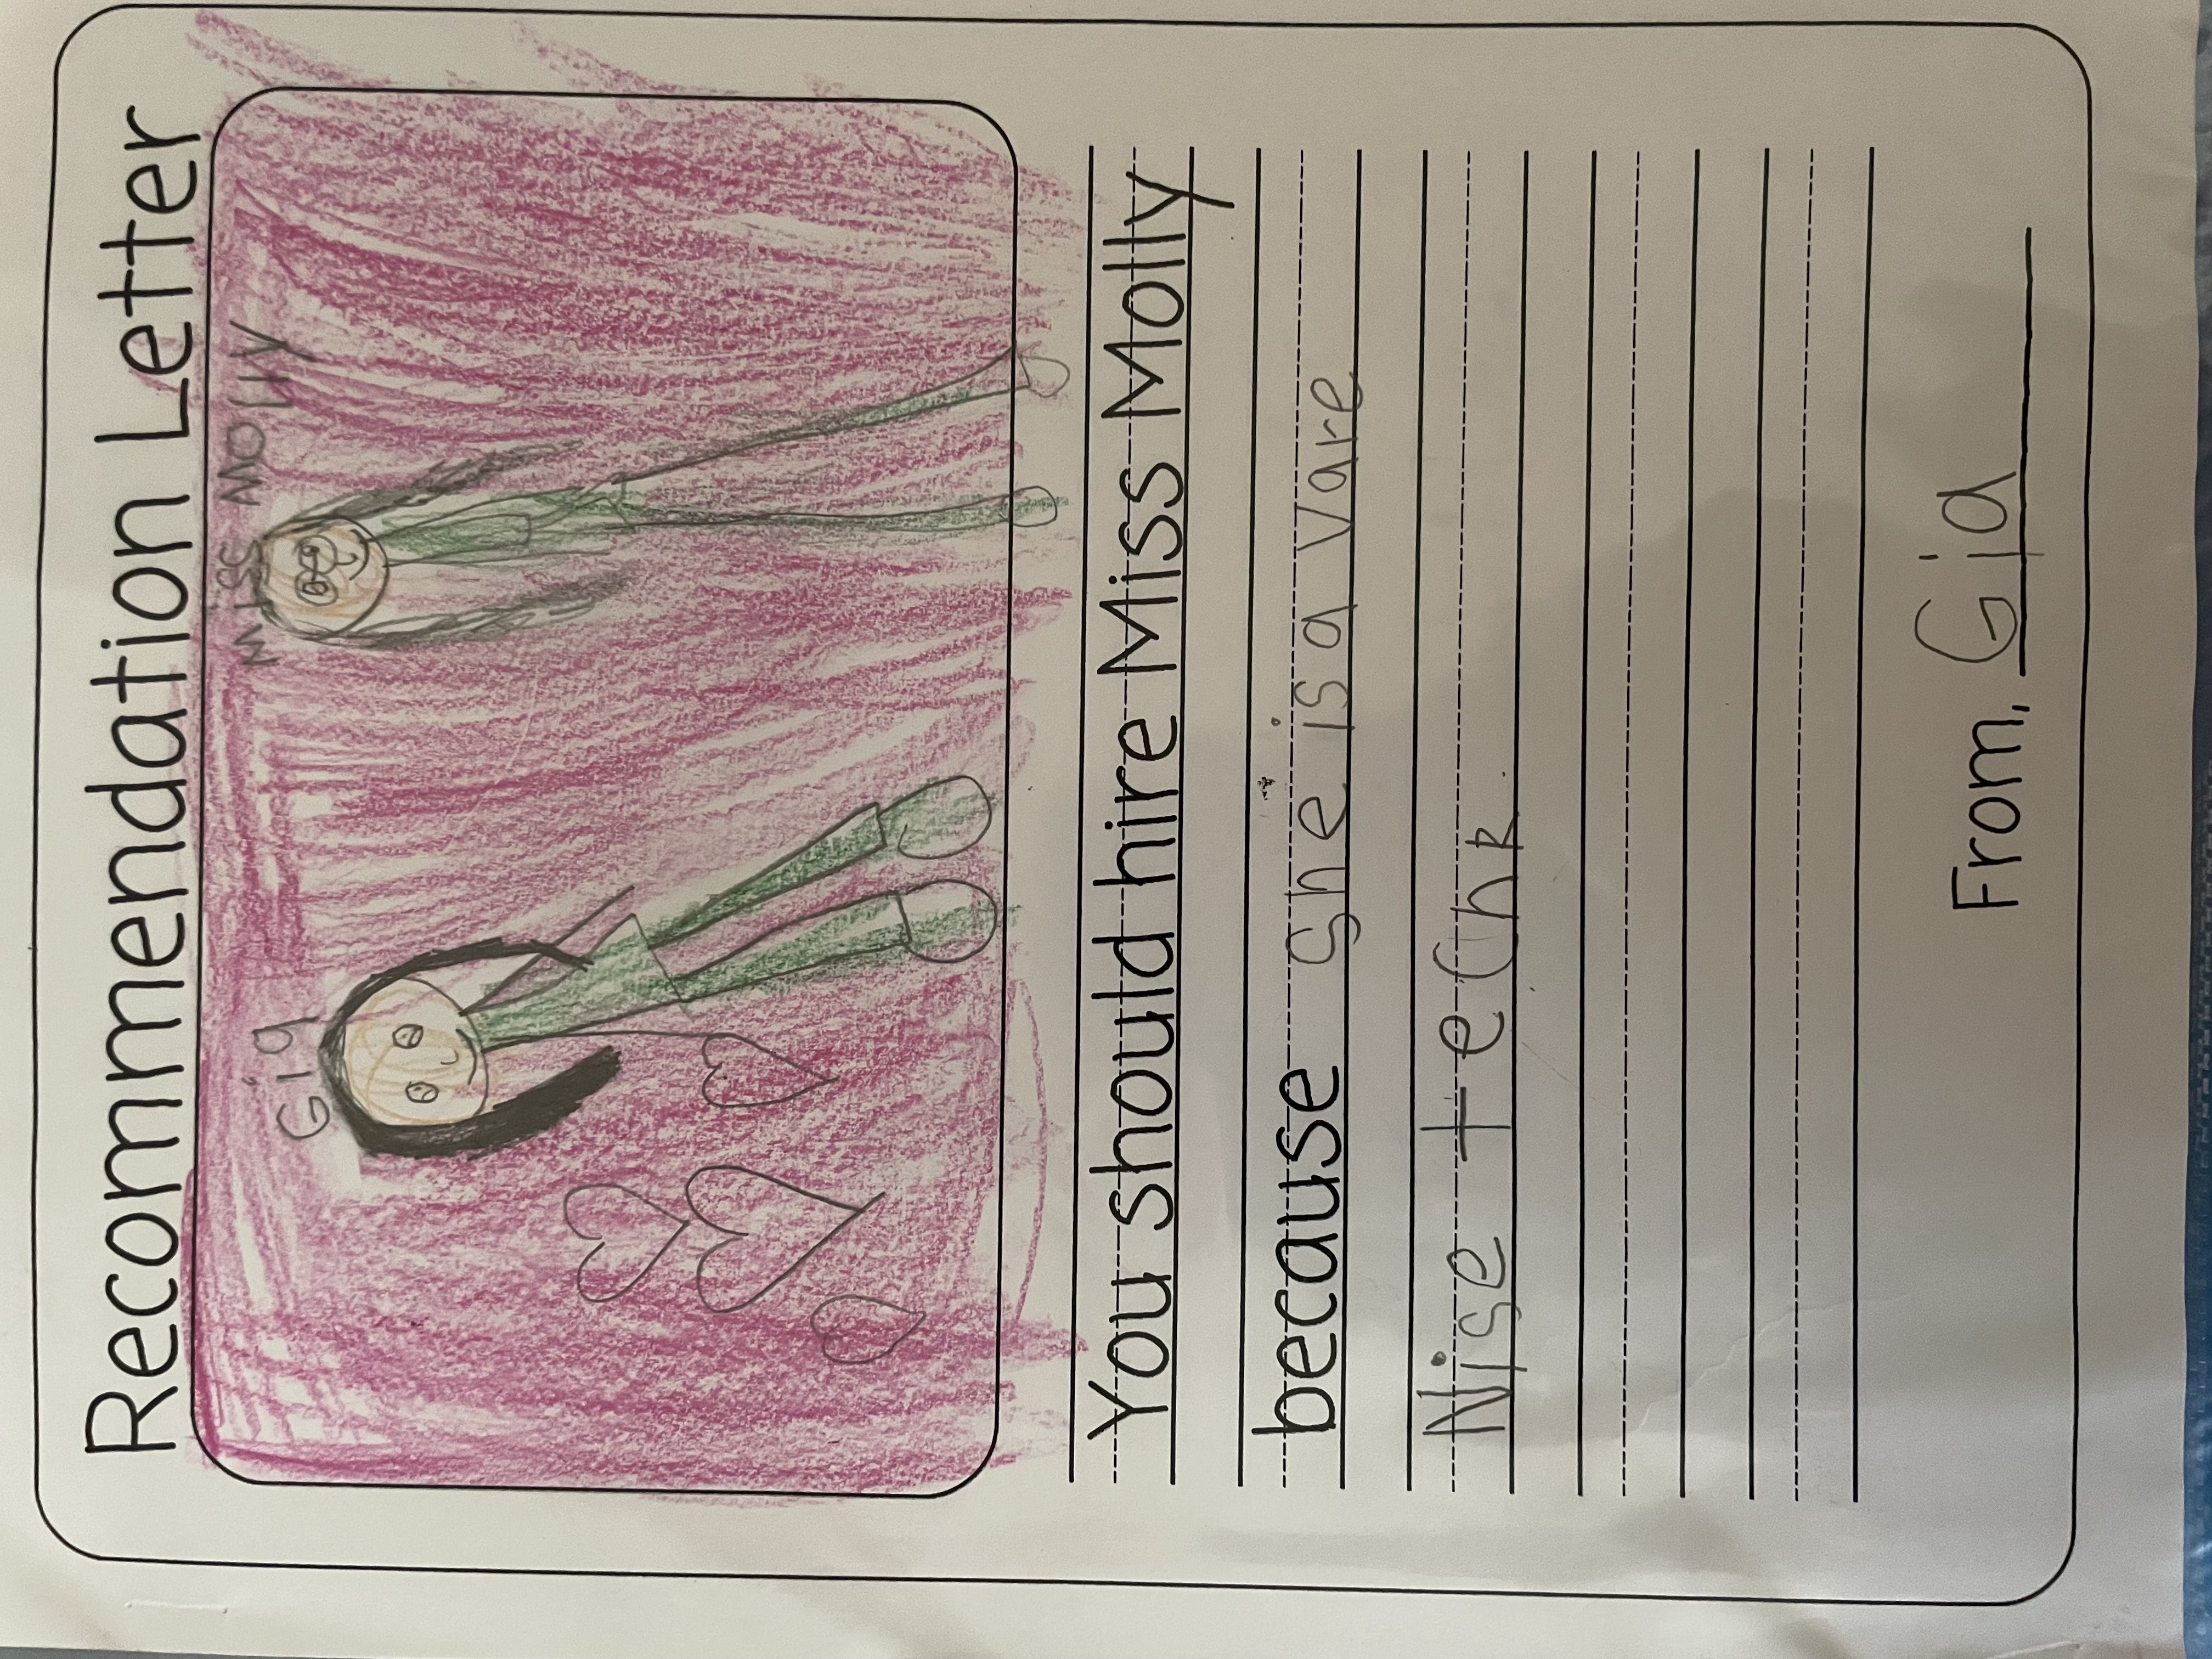 Recommendation Letter
Gia
Miss Molly
You should hire Miss Molly
because she is a vare
Nise techr.
From, Gia